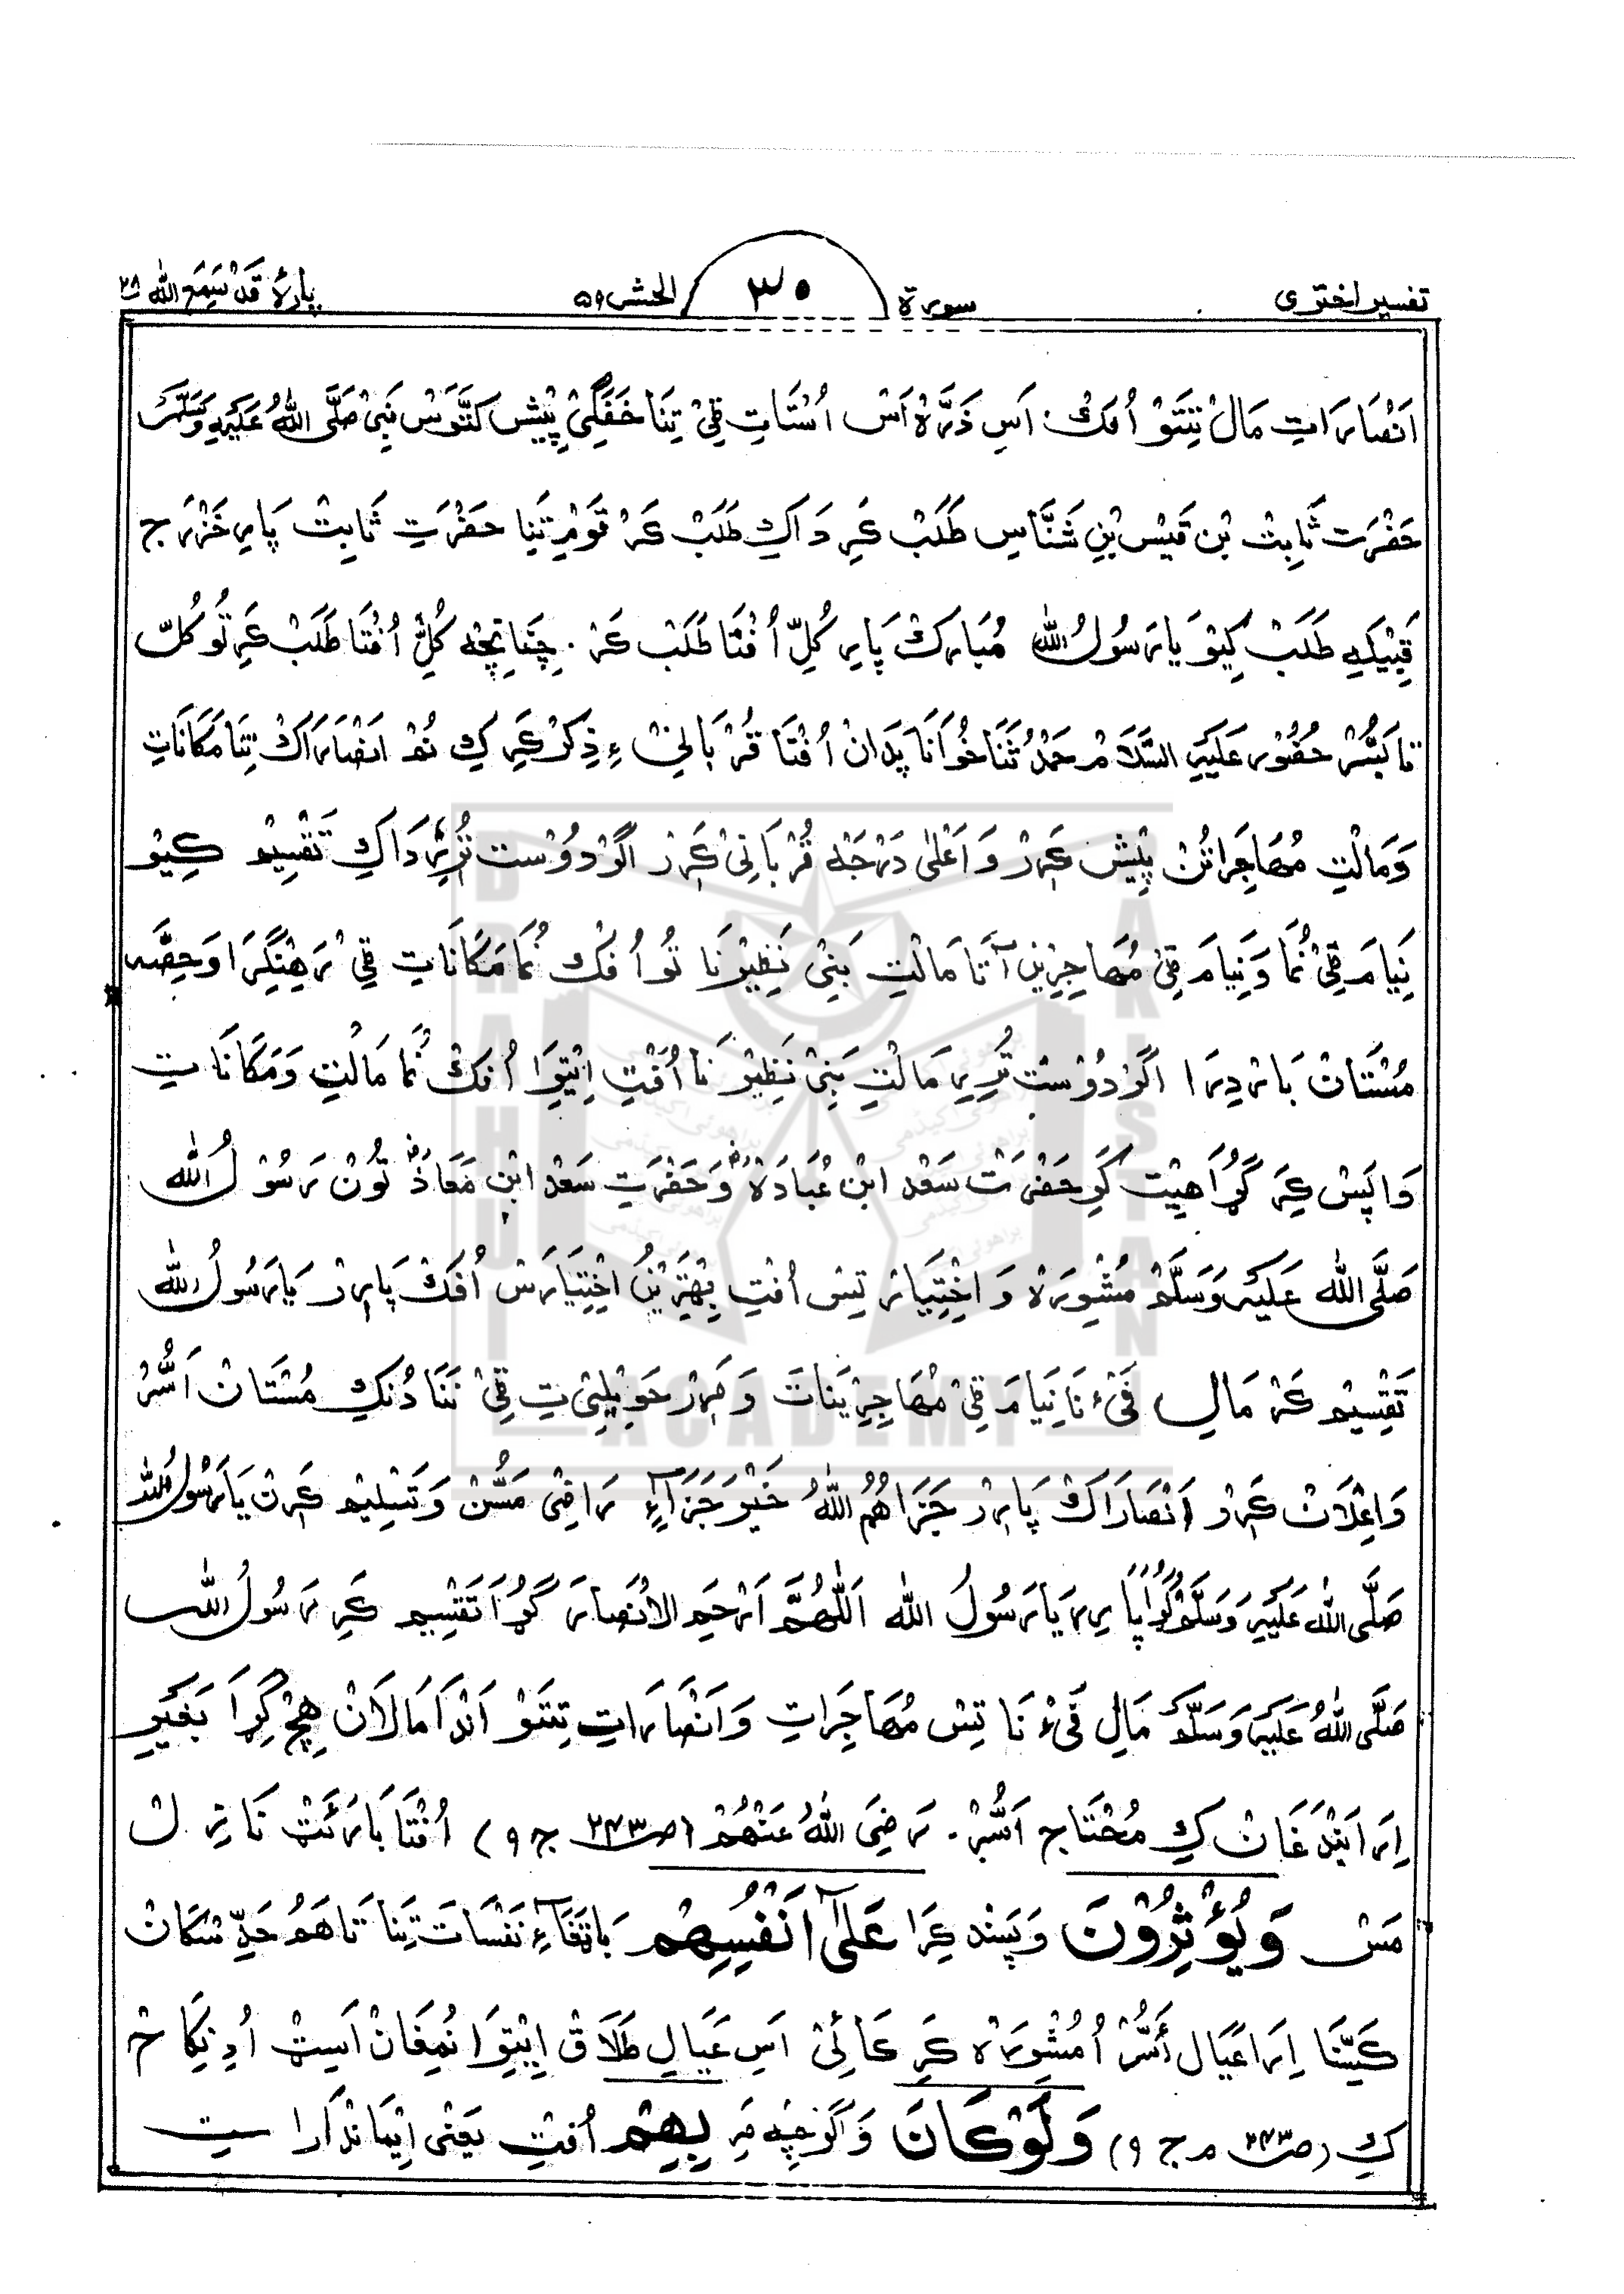 تفسیر اختری
سورة
۳۰
الحشر ۵۹
پارۂ قَدْ سَمِعَ اللہ ۲۸
اَنْصَارَاتِ مَالْ تِتَوْ اُفَکْ اَسِ ذَرَّہْ اَسْ اُسْتَاتِ ٹِیْ تِنَا خَفَگِیْ پِیْش کَتَّوَسْ نَبِیْ صَلَّی اللّٰہُ عَلَیْہِ وَسَلَّمَ
حَضْرَت ثَابِتْ بْن قَیْس بْنِ شَنَّاسِ طَلَبْ کَرِ دَاکِ طَلَبْ کَرْ قَوْمِ تَنِا حَضْرَتِ ثَابِتْ پَارِ خَزْرَج
قَبِیْلَہِ طَلَبْ کِیْوَ یَا رَسُولُ اللّٰہ مُبَارَکْ پَارِ کُلِّ اُفْتَا طَلَبْ کَرْ۔ چِنَانِچِہ کُلِّ اُفْتَا طَلَبْ کَرِ تُو کُلّ
تَا بَسُّرْ حُضُوْر عَلَیْہِ السَّلَامْ حَمْدُ ثَنَا خُوَانَا پَدَانْ اُفْتَا قُرْبَانِیْ ءِ ذِکْرْ کَرِ کِ نُمْ اَنْصَارَاکْ تِنَا مَکَانَاتِ
وَمَالْتِ مُهَاجِرَاتَنْ پِیْش کَرِرْ وَ اَعْلٰی دَرْجَہْ قُرْبَانِیْ کَرِرْ اَگَرْ دُوْسْت تُرِیْرِ دَاکِ تَقْسِیْم کِیْو
نِیَامَ ٹِیْ نُمَا وَنِیَامَ ٹِیْ مُهَاجِرِیْن آتَا مَالْتِ بَنِیْ نَظِیْرْ نَا تُو اُفَکْ نُمَا مَکَانَاتِ ٹِیْ رَهِنْگِرَا وَحِصَّہ
مُسْتَانْ بَارْ دِرَا اَگَرْ دُوْسْت تُرِیْرِ مَالْتِ بَنِیْ نَظِیْرْ نَا اُفْتِ اِیْتِوَا اُفَکْ نُمَا مَالْتِ وَمَکَانَاتِ
وَاپَسْ کِرَ گُڑَا هِیْت کَرِ حَضْرَتْ سَعْد ابْن عُبَادَہْ وَحَضْرَتِ سَعْد ابْنِ مَعَاذْ تُوْنْ رَسُوْلُ اللّٰہ
صَلَّی اللّٰہ عَلَیْہِ وَسَلَّمْ مُشْوِرَہْ وَ اخْتِیَارْ تِسْ اُفْتِ بِهْتَرِیْنُ اخْتِیَارَسْ اُفَکْ پَارِرْ یَا رَسُولُ اللّٰہ
تَقْسِیْم کَرْ مَالِ فَیْءْ نَا نِیَامَ ٹِیْ مُهَاجِرِیْنَاتَ وَ مَرِرْ حَوِیْلِیْ تِ ٹِیْ نَنَا دُنْکِ مُسْتَانْ اَسُّرْ
وَاعِلَانْ کَرِرْ اَنْصَارَاکْ پَارِرْ جَزَاهُمُ اللّٰہُ خَیْرَ جَزَآءٍ رَاضِیْ مَسُّنْ وَتَسْلِیْم کَرِنْ یَا رَسُوْلَ اللّٰہ
صَلَّی اللّٰہ عَلَیْہِ وَسَلَّمْ گُڑَا پَارِرِ یَا رَسُولُ اللّٰہ اَللّٰهُمَّ اَرْحَمِ الْاَنْصَارَ گُڑَا تَقْسِیم کَرِ رَسُولُ اللّٰہ
صَلَّی اللّٰہُ عَلَیْہِ وَسَلَّمَ مَالِ فَیْءْ نَا تِسْ مُهَاجِرَاتِ وَاَنْصَارَاتِ تِتَوْ اَنْدَا مَالَانْ هِچْ گِرَا بَغَیْرِ
اِرَا بَنْدَغَانْ کِ مُحْتَاج اَسُّرْ۔ رَضِیَ اللّٰہُ عَنْهُمْ (ص ۲۴۳ ج ۹) اُفْتَا بَارَئَتْ نَازِلْ
مَسْ وَیُؤْثِرُوْنَ وَپَسَنْد کِرَا عَلٰٓی اَنْفُسِهِمْ بَاتِفَآءِ نَفْسَاتَ تِنَا تَا هَمْ حَدِّ سْکَانْ
کَسِّنَا اِرَا عَیَال اَسُّرْ اُ مُشْوِرَہ کَرِ کَائِیْ اَسِ عَیَالِ طَلَاقْ اِیْتِوَا نُمِغَانْ اَسِیْتْ اُدِ نِکَاحْ
کِ (ص ۲۴۳ ج ۹) وَلَوْ کَانَ وَاَگَرْچِہ مَرِ بِهِمْ اُفْتِ یَعْنِی اِیْمَانْدَارَاتِ